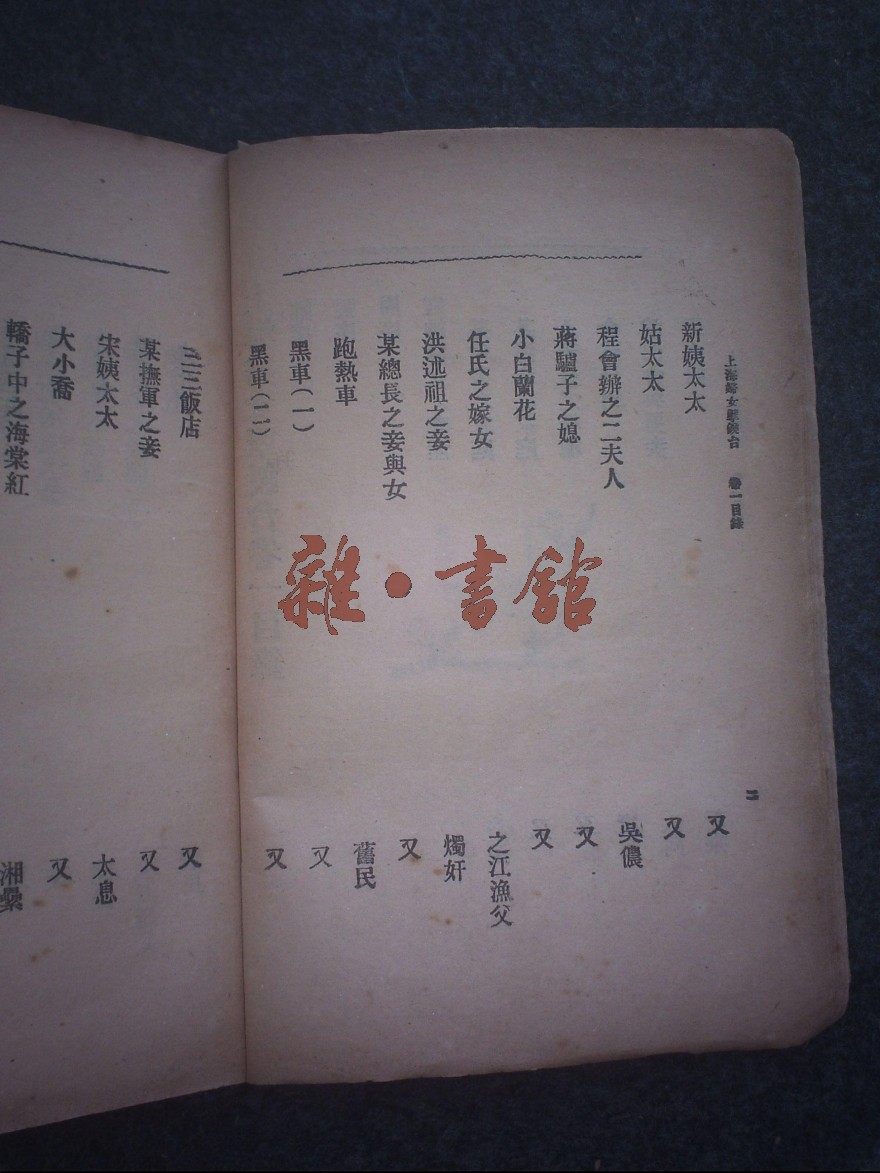 上海婦女孽鏡台 卷一目錄
二
新姨太太 又
姑太太 又
程會辦之二夫人 吳儂
蔣驢子之媳 又
小白蘭花 又
任氏之嫁女 之江漁父
洪述祖之妾 燭奸
某總長之妾與女 又
跑熱車 舊民
黑車(一) 又
黑車(二) 又
三三飯店 又
某撫軍之妾 又
宋姨太太 太息
大小喬 又
轎子中之海棠紅 湘纍
雜·書館